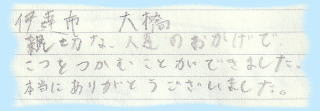 伊予市　大橋
親切な、人達のおかげで
こつをつかむことができました。
本当にありがとうございました。